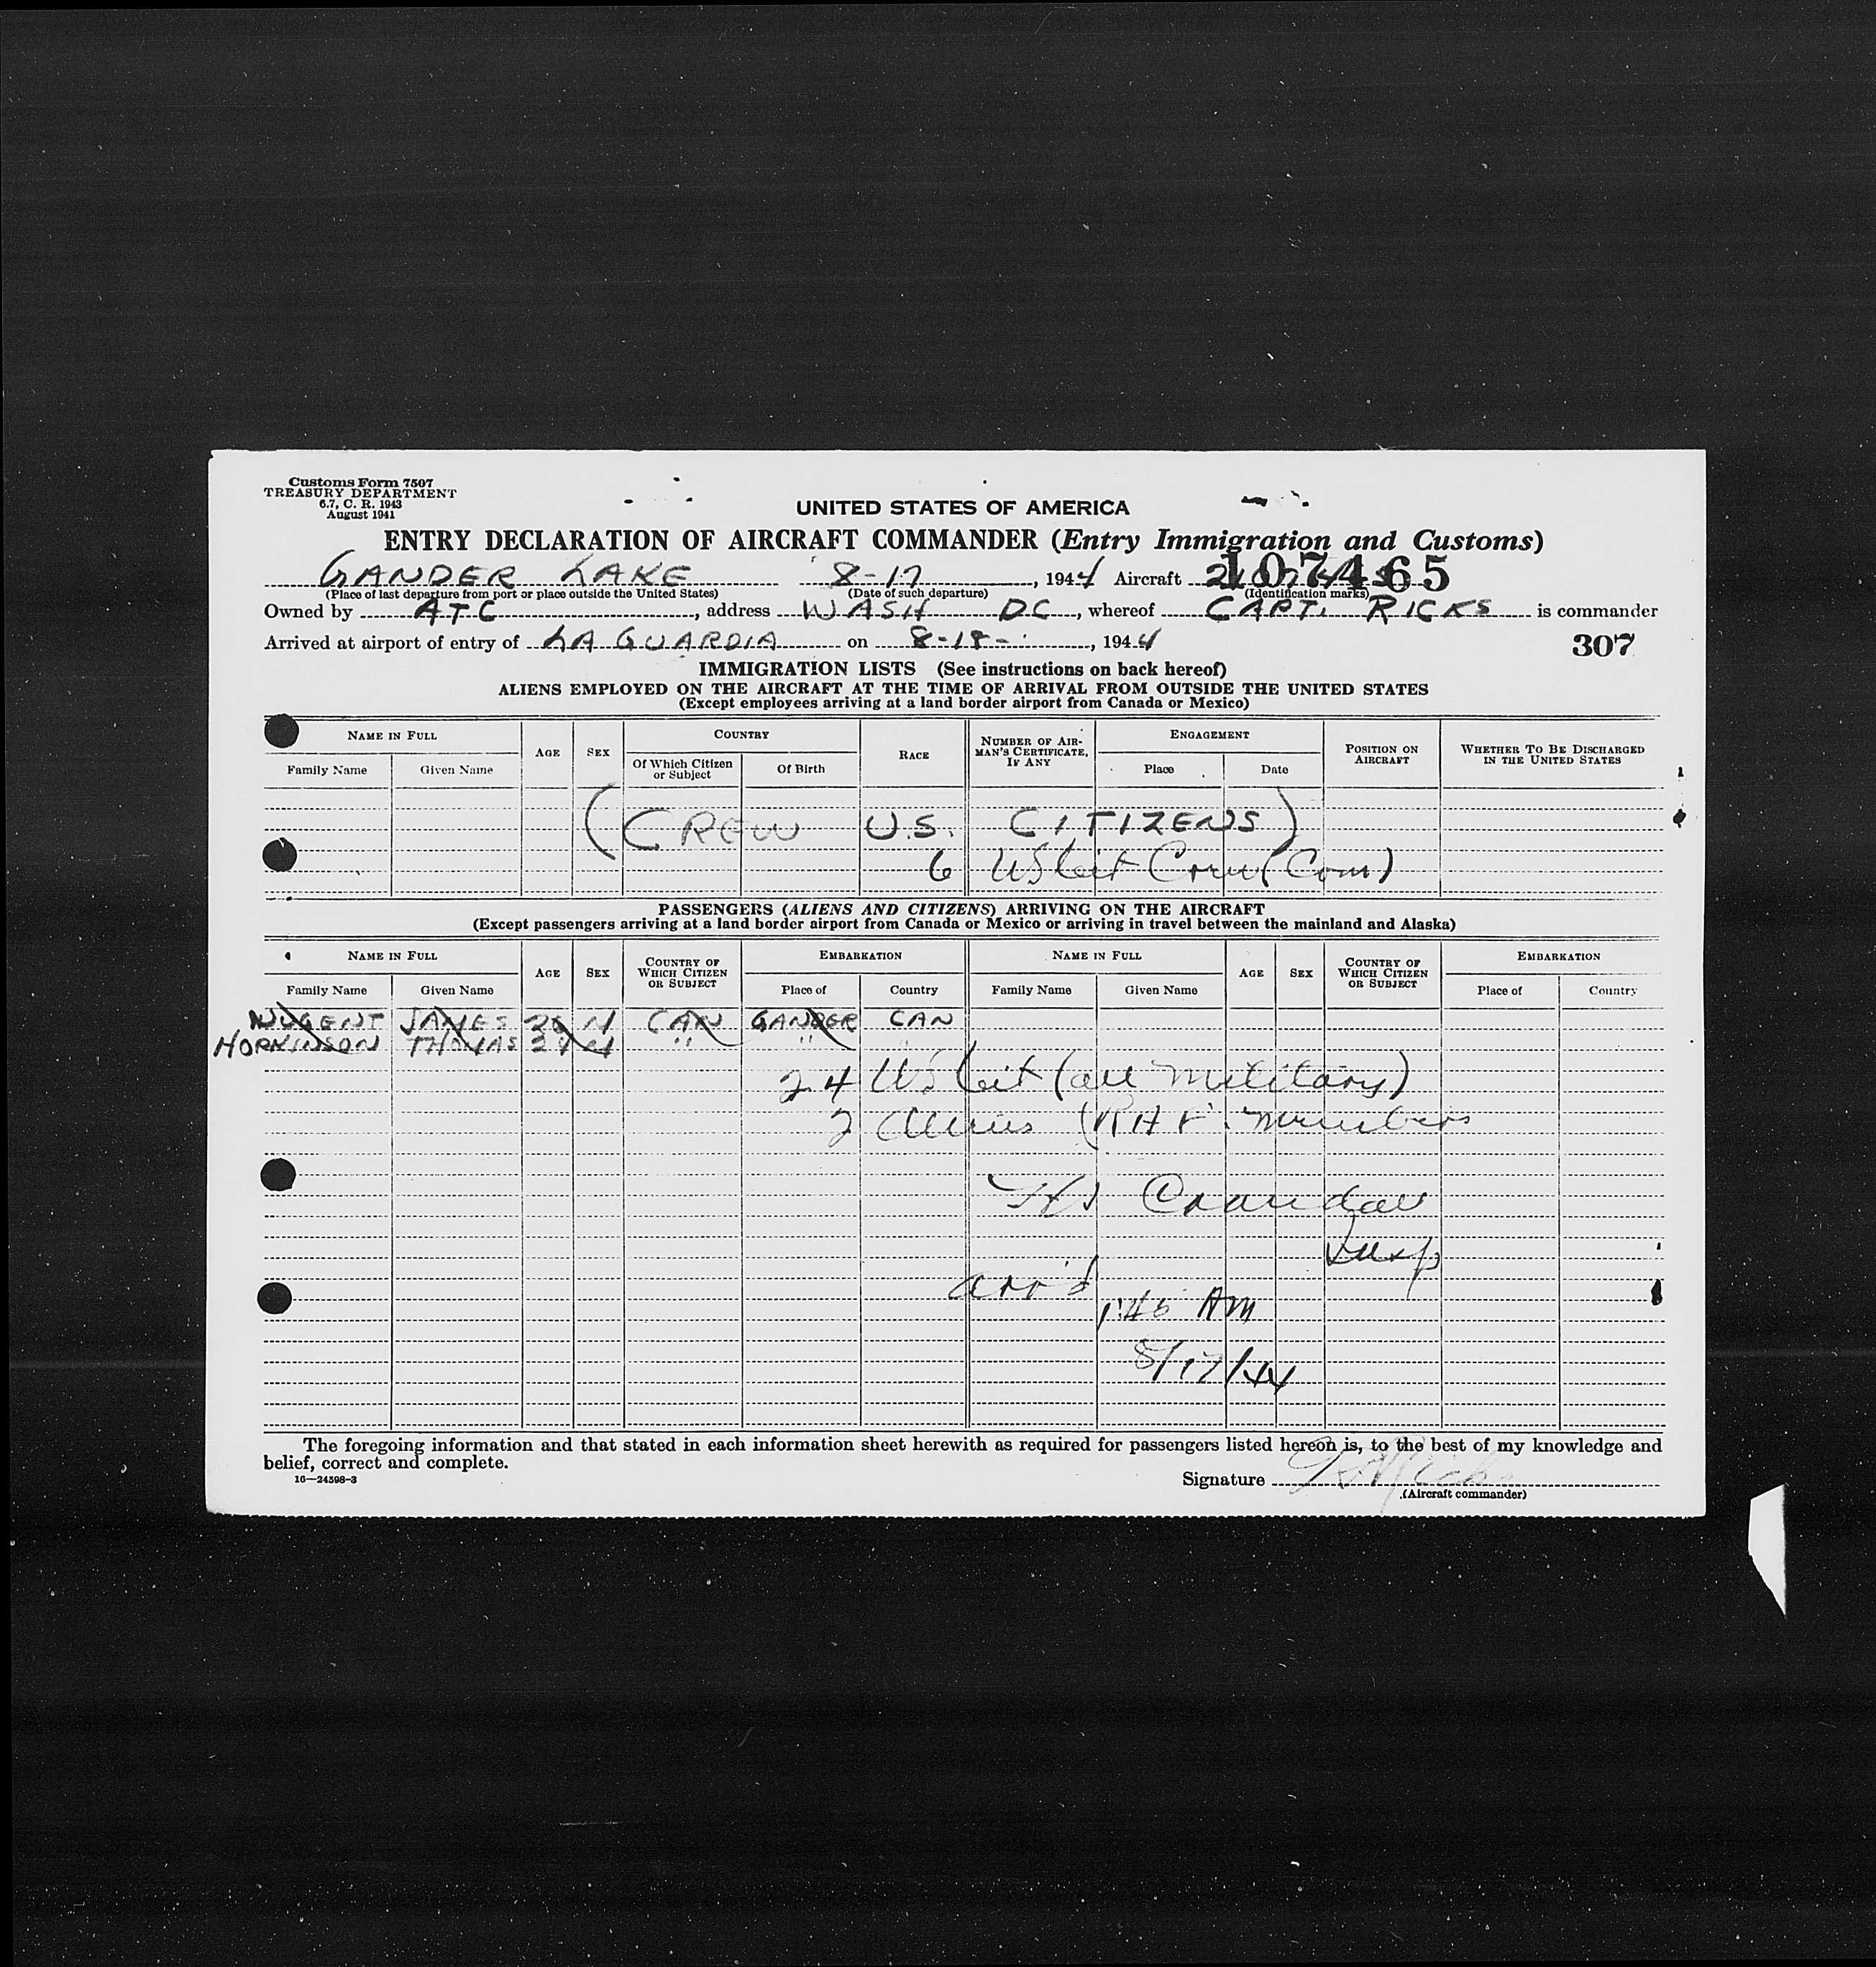 Customs Form 7507
TREASURY DEPARTMENT
6.7, C. R. 1943
August 1941
UNITED STATES OF AMERICA
ENTRY DECLARATION OF AIRCRAFT COMMANDER (Entry Immigration and Customs)
GANDER LAKE 8-17, 1944 Aircraft 107465
(Place of last departure from port or place outside the United States) (Date of such departure) (Identification marks)
Owned by ATC, address WASH DC, whereof CAPT. RICKS is commander
Arrived at airport of entry of LA GUARDIA on 8-18-, 1944
307
IMMIGRATION LISTS (See instructions on back hereof)
ALIENS EMPLOYED ON THE AIRCRAFT AT THE TIME OF ARRIVAL FROM OUTSIDE THE UNITED STATES
(Except employees arriving at a land border airport from Canada or Mexico)
NAME IN FULL AGE SEX COUNTRY RACE NUMBER OF AIRMAN'S CERTIFICATE, IF ANY ENGAGEMENT POSITION ON AIRCRAFT WHETHER TO BE DISCHARGED IN THE UNITED STATES
Family Name Given Name Of Which Citizen or Subject Of Birth Place Date
(CREW U.S. CITIZENS)
6 US Cit Crew (Com)
PASSENGERS (ALIENS AND CITIZENS) ARRIVING ON THE AIRCRAFT
(Except passengers arriving at a land border airport from Canada or Mexico or arriving in travel between the mainland and Alaska)
NAME IN FULL AGE SEX COUNTRY OF WHICH CITIZEN OR SUBJECT EMBARKATION NAME IN FULL AGE SEX COUNTRY OF WHICH CITIZEN OR SUBJECT EMBARKATION
Family Name Given Name Place of Country Family Name Given Name Place of Country
NUGENT JAMES 26 M CAN GANDER CAN
HORKINSON THOMAS 24 M " " "
24 US Cit (all military)
2 Aliens (RAF members
Crandall
Insp
arr'd
1:45 AM
8/17/44
The foregoing information and that stated in each information sheet herewith as required for passengers listed hereon is, to the best of my knowledge and
belief, correct and complete.
16—24598-3
Signature Ricks
(Aircraft commander)